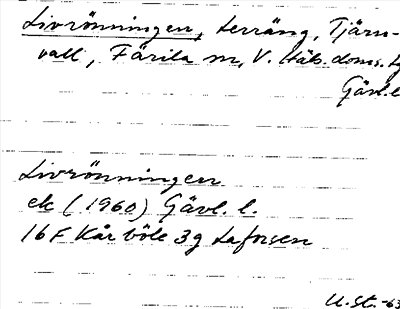 Livrönningen, terräng, Tjärn-
vall, Färila sn, V. Häls. doms.
Gävl.l
Livrönningen
ek (1960) Gävl. l.
16F Kårböle 3g Laforsen
U.St.-63